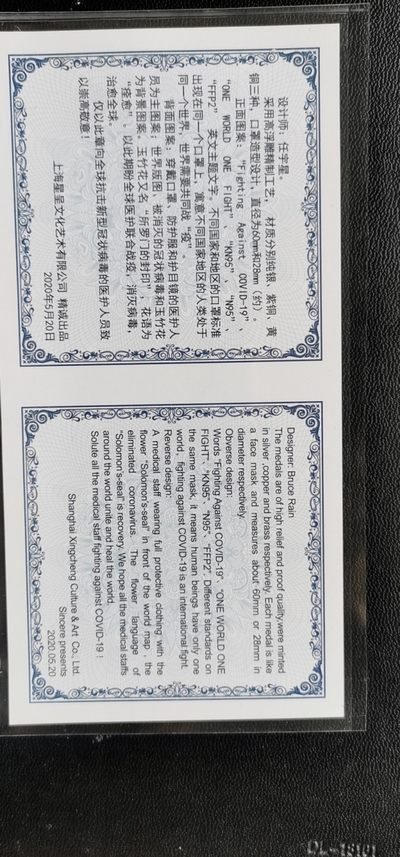 设计师：任宇星。
采用高浮雕精制工艺，材质分别纯银、紫铜、黄
铜三种，口罩造型设计，直径为60mm和28mm（约）。
正面图案："Fighting Against COVID-19"、
"ONE WORLD ONE FIGHT"、"KN95"、"N95"、
"FFP2"英文主题文字。不同国家和地区的口罩标准
出现在同一个口罩上，寓意不同国家地区的人类处于
同一个世界，世界需要共同战"疫"。
背面图案：穿戴口罩、防护服和护目镜的医护人
员为主图案；世界版图、被消灭的冠状病毒和玉竹花
为背景图案。玉竹花又名"所罗门的封印"，花语为
"痊愈"，以此期盼全球医护联合战疫，消灭病毒，
治愈全球。
仅以此章向全球抗击新型冠状病毒的医护人员致
以崇高敬意！
上海星呈文化艺术有限公司 精诚出品
2020年5月20日
Designer: Bruce Rain
The medals are of high relief and proof quality,were minted
in silver ,copper and brass respectively. Each medal is like
a face mask and measures about 60mm or 28mm in
diameter respectively.
Obverse design:
Words "Fighting Against COVID-19"、"ONE WORLD ONE
FIGHT"、"KN95"、"N95"、"FFP2" Different standards on
the same mask, it means human beings have only one
world，fighting against COVID-19 is an international fight.
Reverse design:
A medical staff wearing full protective clothing with the
flower "Solomon's-seal" in front of the world map , the
eliminated coronavirus. The flower language of
"Solomon's-seal" is recovery. We hope all the medical staffs
around the world unite and heal the world.
Solute all the medical staff fighting against COVID-19！
Shanghai Xingcheng Culture & Art Co., Ltd.
Sincere presents
2020.05.20
DL-18101